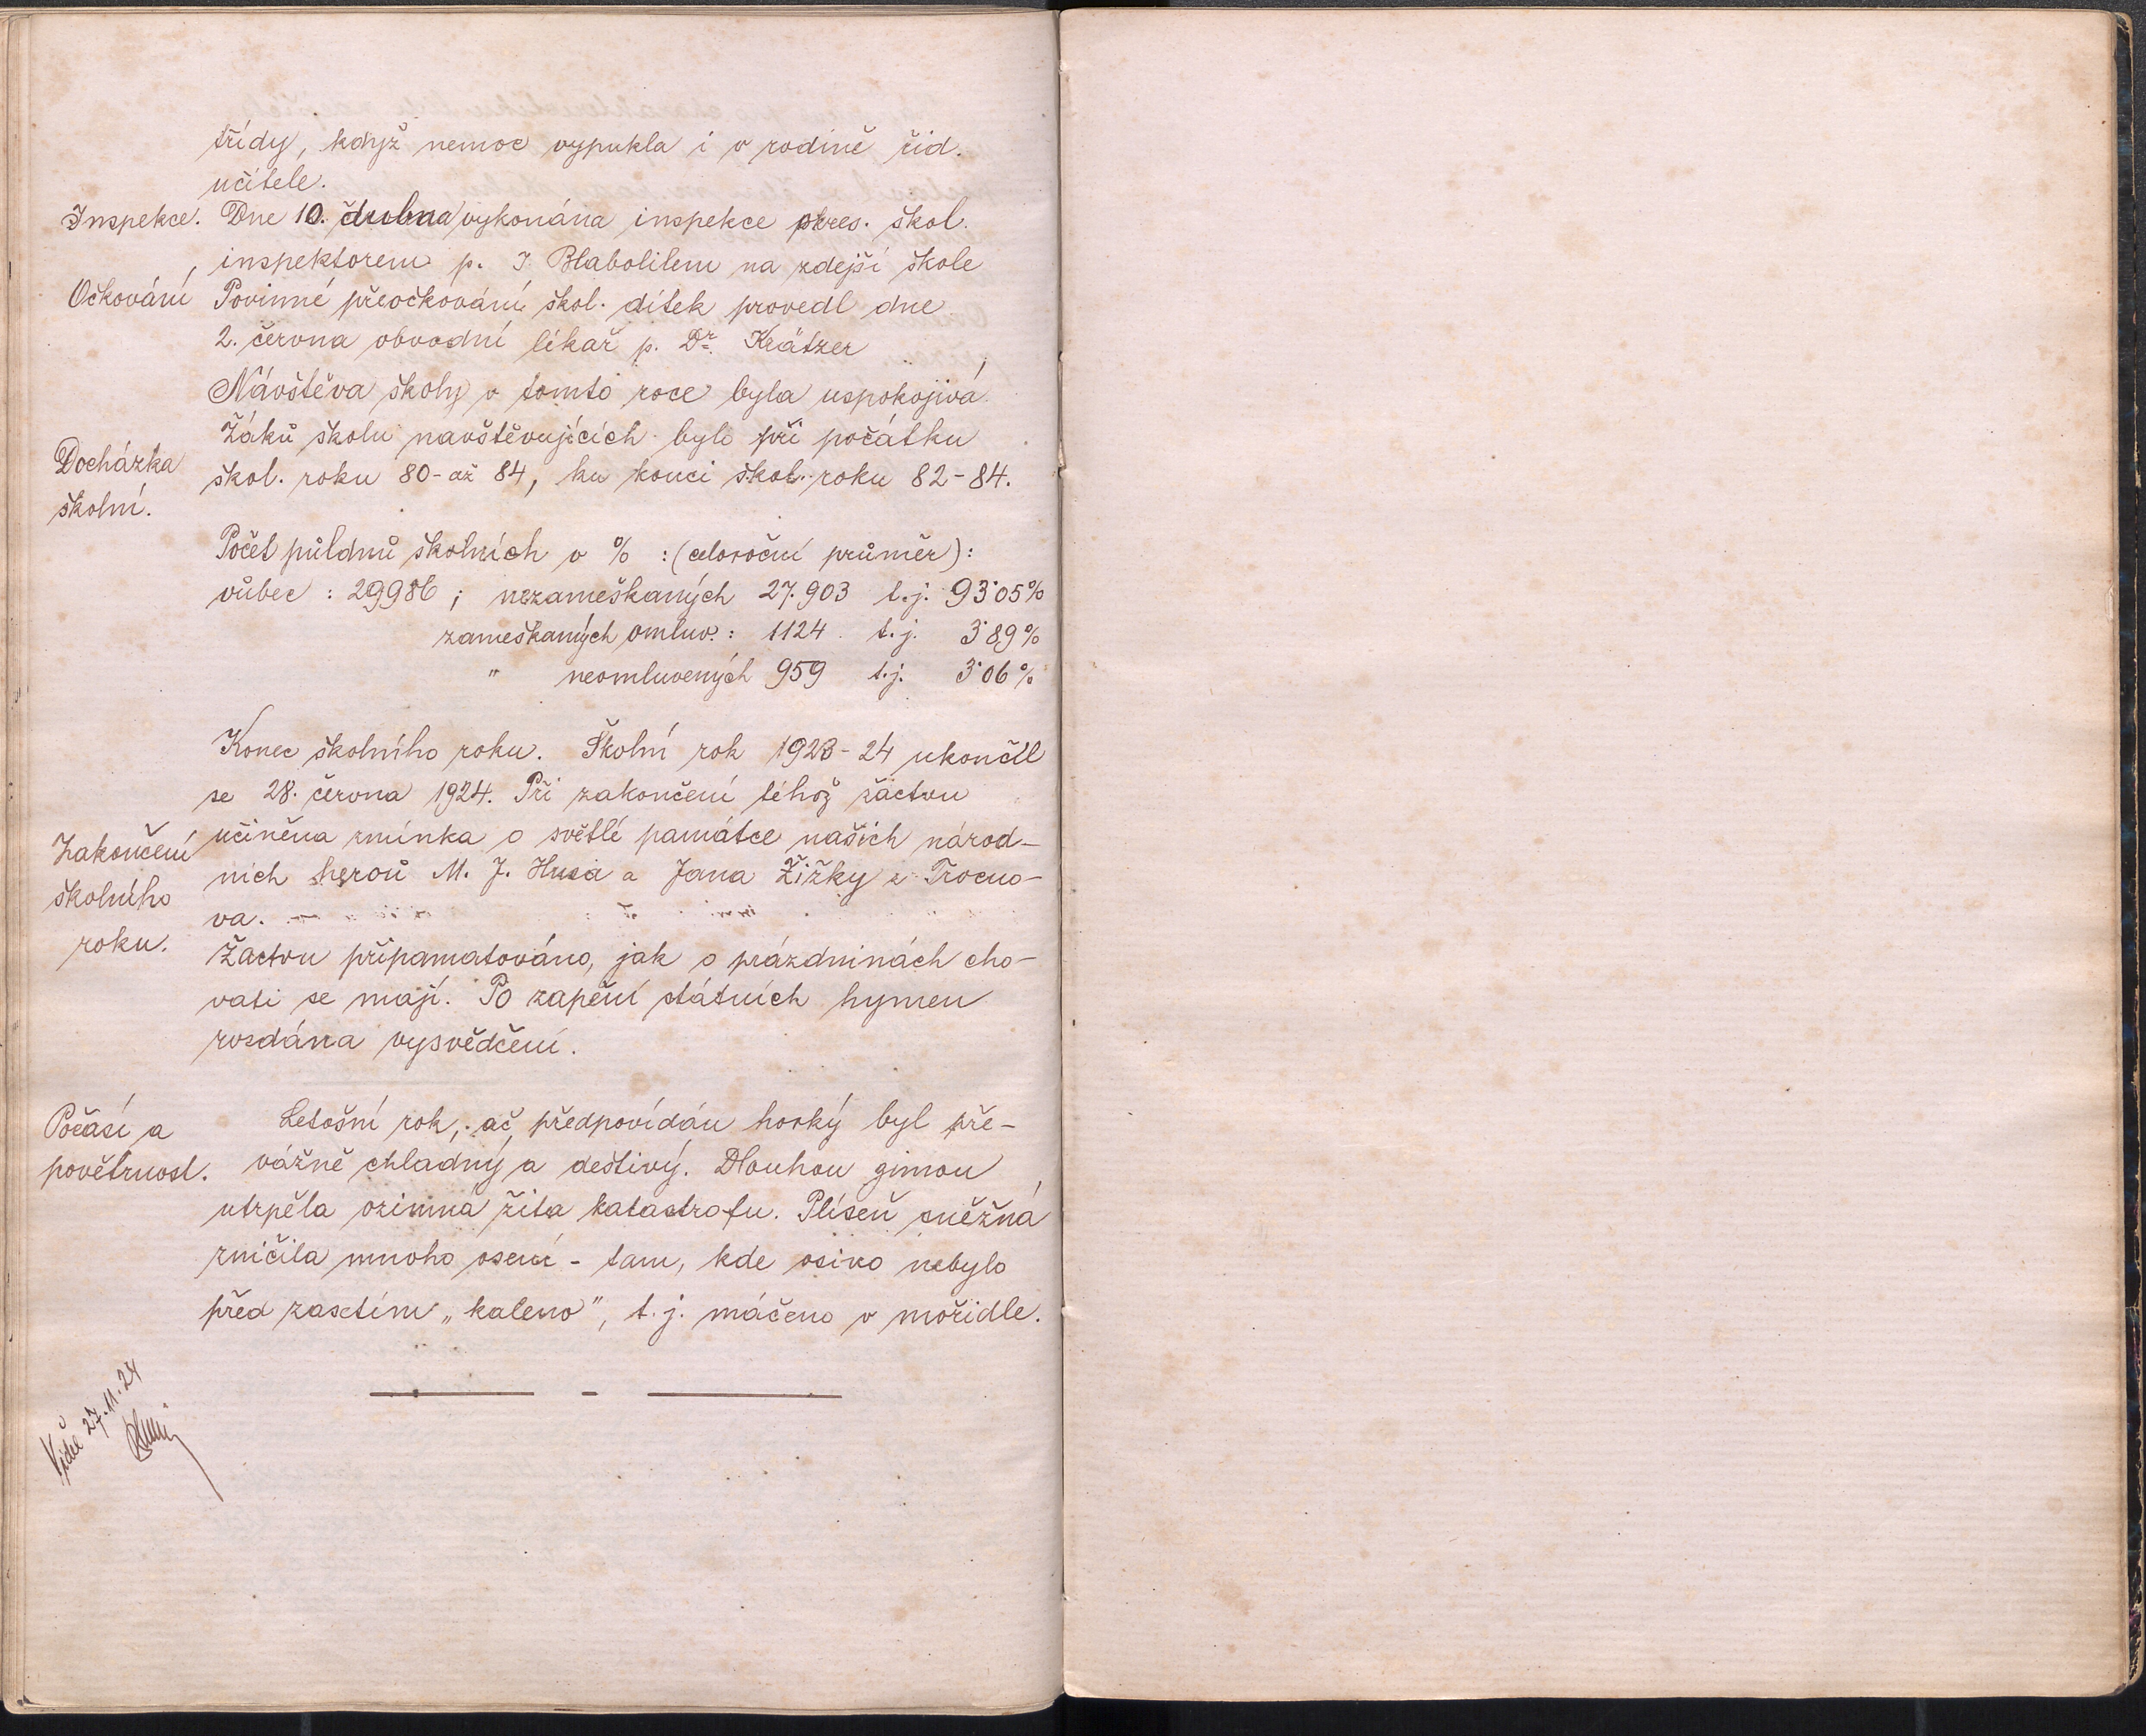 třídy, když nemoc vypukla i v rodině říd.
učitele.
Inspekce. Dne 10. dubna vykonána inspekce okres. škol.
inspektorem p. J. Blabolilem na zdejší škole
Očkování Povinné přeočkování škol. dítek provedl dne
2. června obvodní lékař p. Dr. Krätzer
Návštěva školy v tomto roce byla uspokojivá.
Žáků školu navštěvujících bylo při počátku
Docházka
školní.
škol. roku 80 - až 84, ku konci škol. roku 82 - 84.
Počet půldnů školních v % : (celoroční průměr):
vůbec : 29986 ; nezameškaných 27.903 t.j. 93˙05%
zameškaných omluv. : 1124 t.j. 3˙89%
" neomluvených 959 t.j. 3˙06%
Konec školního roku. Školní rok 1923 - 24 ukončil
se 28. června 1924. Při zakončení téhož žáctvu
Zakončení
školního
roku.
učiněna zmínka o světlé památce našich národ-
ních heroů M. J. Husa a Jana Žižky z Trocno-
va.
Žactvu připamatováno, jak o prázdninách cho-
vati se mají. Po zapění státních hymen
rozdána vysvědčení.
Počasí a
povětrnost.
Letošní rok, ač předpovídán horký byl pře-
vážně chladný a deštivý. Dlouhou zimou
utrpěla ozimná žita katastrofu. Plíseň sněžná
zničila mnoho osení - tam, kde osivo nebylo
před zasetím „kaleno", t. j. máčeno v mořidle.
Viděl 27. 11. 24